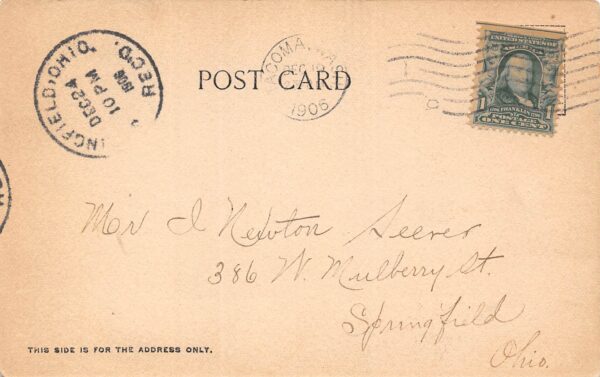 SPRINGFIELD, OHIO.
DEC 24
10 PM
1906
REC'D.
TACOMA, WASH.
DEC 19
1906
POST CARD
UNITED STATES OF AMERICA
1
FRANKLIN
1
POSTAGE
ONE CENT
Mr I Newton Seever
386 W. Mulberry St.
Springfield
Ohio.
THIS SIDE IS FOR THE ADDRESS ONLY.